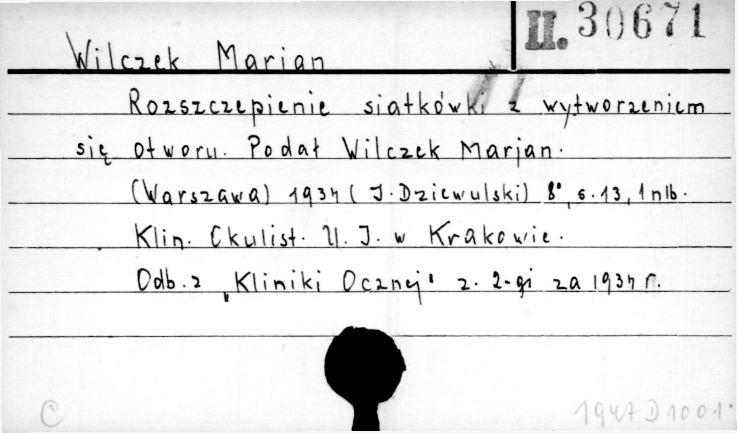 II. 30671
Wilczek Marian
Rozszczepienie siatkówki z wytworzeniem
się otworu. Podał Wilczek Marjan.
(Warszawa) 1934 (J. Dziewulski) 8°, s. 13, 1 nlb.
Klin. Okulist. U. J. w Krakowie.
Odb. z „Kliniki Ocznej" z. 2-gi za 1934 r.
C 1947 D 1001.